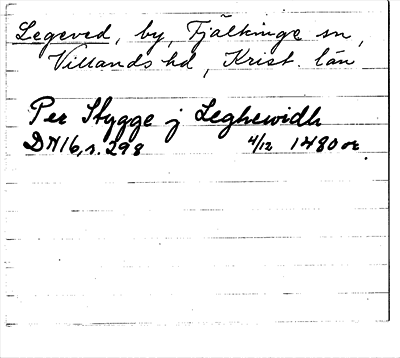 Legeved, by, Fjälkinge sn,
Villands hd, Krist. län
Per Stygge j Leghewidh
DN 16, s. 298 4/12 1480 or.